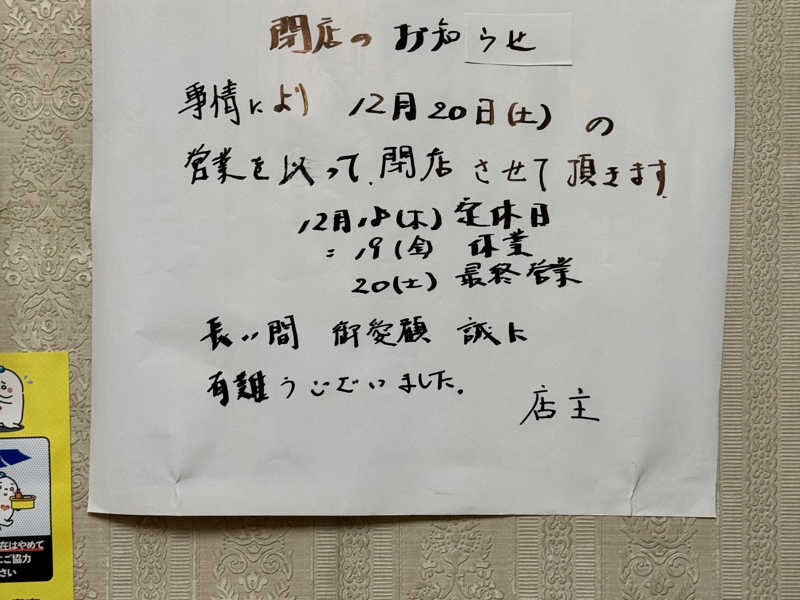 閉店のお知らせ
事情により 12月20日(土)の
営業を以って、閉店させて頂きます
12月18(木) 定休日
〃 19(金) 休業
20(土) 最終営業
長い間 御愛顧 誠に
有難うございました。
店主
在はやめて
ご協力
さい